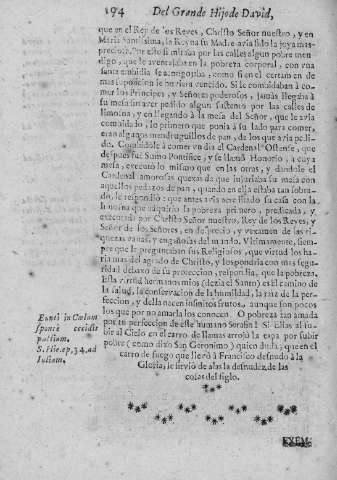 194 Del Grande Hijo de David,
que en el Rey de los Reyes, Christo Señor nuestro, y en
Maria Santissima, la Reyna su Madre avia sido la joya mas
preciosa. Por esso si miraba por las calles algun pobre men-
digo, que le aventajaba en la pobreza corporal, con vna
santa embidia se acongojaba, como si en el certamen de
mas superior le huviera vencido. Si le combidaban à co-
mer los Principes, y Señores poderosos, jamàs llegaba à
su mesa sin aver pedido algun sustento por las calles de
limosna, y en llegando à la mesa del Señor, que le avia
combidado, lo primero que ponia à su lado para comer,
eran algunos mendruguillos de pan, de los que avia pedi-
do. Combidòle à comer vn dia el Cardenal Ostense, que
despues fue Sumo Pontifice, y se llamò Honorio, à cuya
mesa, executò lo mismo que en las otras, y dandole el
Cardenal amorosas quexas de que injuriaba su mesa con
aquellos pedazos de pan, quando en ella estaba tan sobra-
do, le respondiò: que antes avia servido su casa con la
doctrina que adquirio la pobreza primero, predicada, y
executada por Christo Señor nuestro, Rey de los Reyes, y
Señor de los Señores, en desprecio, y vexamen de las ri-
quezas vanas, y engañosas del mundo. Vltimamente, siem-
pre que le preguntaban sus Religiosos, que virtud los ha-
ria mas del agrado de Christo, y los pondria con mas segu-
ridad debaxo de su proteccion, respondia, que la pobreza.
Esta virtud hermanos mios (dezia el Santo) es el camino de
la salud, la conservacion de la humildad, la raiz de la per-
feccion, y della nacen infinitos frutos, aunque son pocos
los que por no amarla los conocen. O pobreza tan amada
por tu perfeccion de este humano Serafin! Si Elias al su-
bir al Cielo en el carro de llamas arrojò la capa por subir
pobre (como dixo San Geronimo) quien duda, que en el
carro de fuego que llevò à Francisco desnudo à la
Gloria, le sirviò de alas la desnudez de las
cosas del siglo.
Eunti in Cœlum
sponte cecidit
pallium.
S. Hie. ep. 34. ad
Iulian.
EXEM-